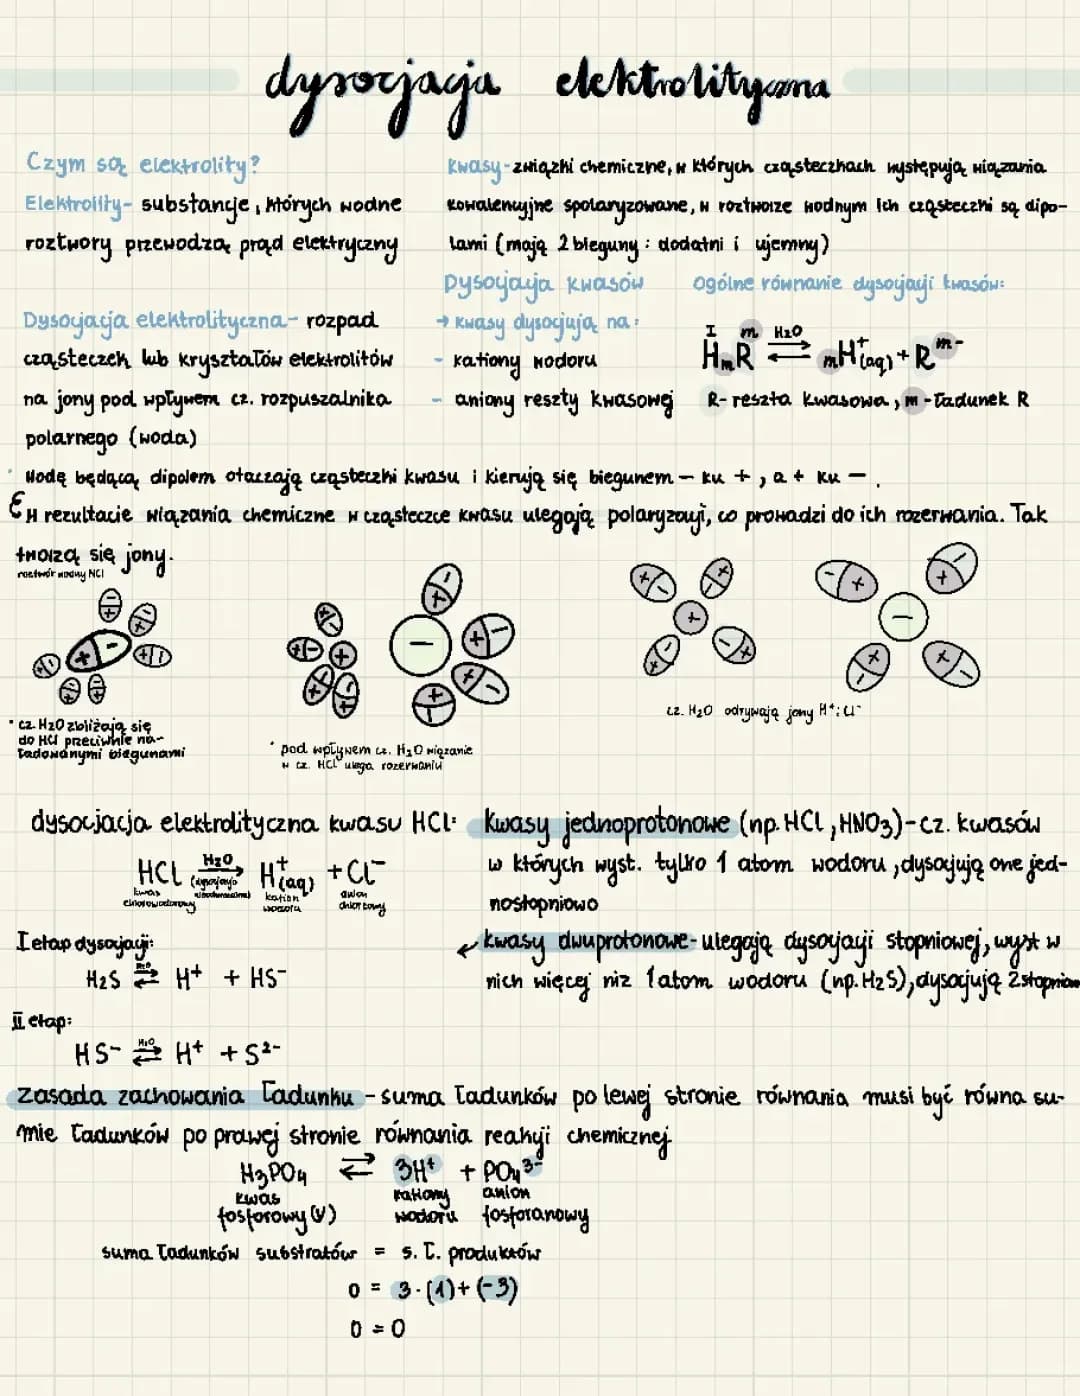 dysocjacja elektrolityczna
Czym są elektrolity?
Elektrolity- substancje, których wodne
roztwory przewodzą prąd elektryczny
Dysocjacja elektrolityczna- rozpad
cząsteczek lub kryształów elektrolitów
na jony pod wpływem cz. rozpuszalnika
polarnego (woda)
Kwasy-związki chemiczne, w których cząsteczkach występują wiązania
kowalencyjne spolaryzowane, w roztworze wodnym ich cząsteczki są dipo-
lami (mają 2 bieguny: dodatni i ujemny)
Dysocjacja kwasów
→ kwasy dysocjują na:
- kationy wodoru
- aniony reszty kwasowej
Ogólne równanie dysocjacji kwasów:
I m H2O
HmR ⇌ mH+(aq) + R m-
R-reszta kwasowa, m-ładunek R
Wodę będącą dipolem otaczają cząsteczki kwasu i kierują się biegunem - ku +, a + ku -.
W rezultacie wiązania chemiczne w cząsteczce kwasu ulegają polaryzacji, co prowadzi do ich rozerwania. Tak
tworzą się jony.
roztwór wodny HCl
• cz. H2O zbliżają się
do HCl przeciwnie na-
ładowanymi biegunami
• pod wpływem cz. H2O wiązanie
w cz. HCl ulega rozerwaniu
cz. H2O odrywają jony H+ i Cl-
dysocjacja elektrolityczna kwasu HCl:
H2O
HCl → H+(aq) + Cl-
(dysocjacja nieodwracalna)
kwas chlorowodorowy
kation wodoru
anion chlorkowy
Kwasy jednoprotonowe (np. HCl, HNO3)-cz. kwasów
w których wyst. tylko 1 atom wodoru, dysocjują one jed-
nostopniowo
I etap dysocjacji:
H2S ⇌ H+ + HS-
H2O
II etap:
HS- ⇌ H+ + S2-
H2O
kwasy dwuprotonowe-ulegają dysocjacji stopniowej, wyst w
nich więcej niż 1 atom wodoru (np. H2S), dysocjują 2stopniowo
zasada zachowania ładunku - suma ładunków po lewej stronie równania musi być równa su-
mie ładunków po prawej stronie równania reakcji chemicznej
H3PO4 ⇄ 3H+ + PO4 3-
kwas fosforowy (V)
kationy wodoru
anion fosforanowy
suma ładunków substratów = s. ł. produktów
0 = 3·(1)+(-3)
0 = 0